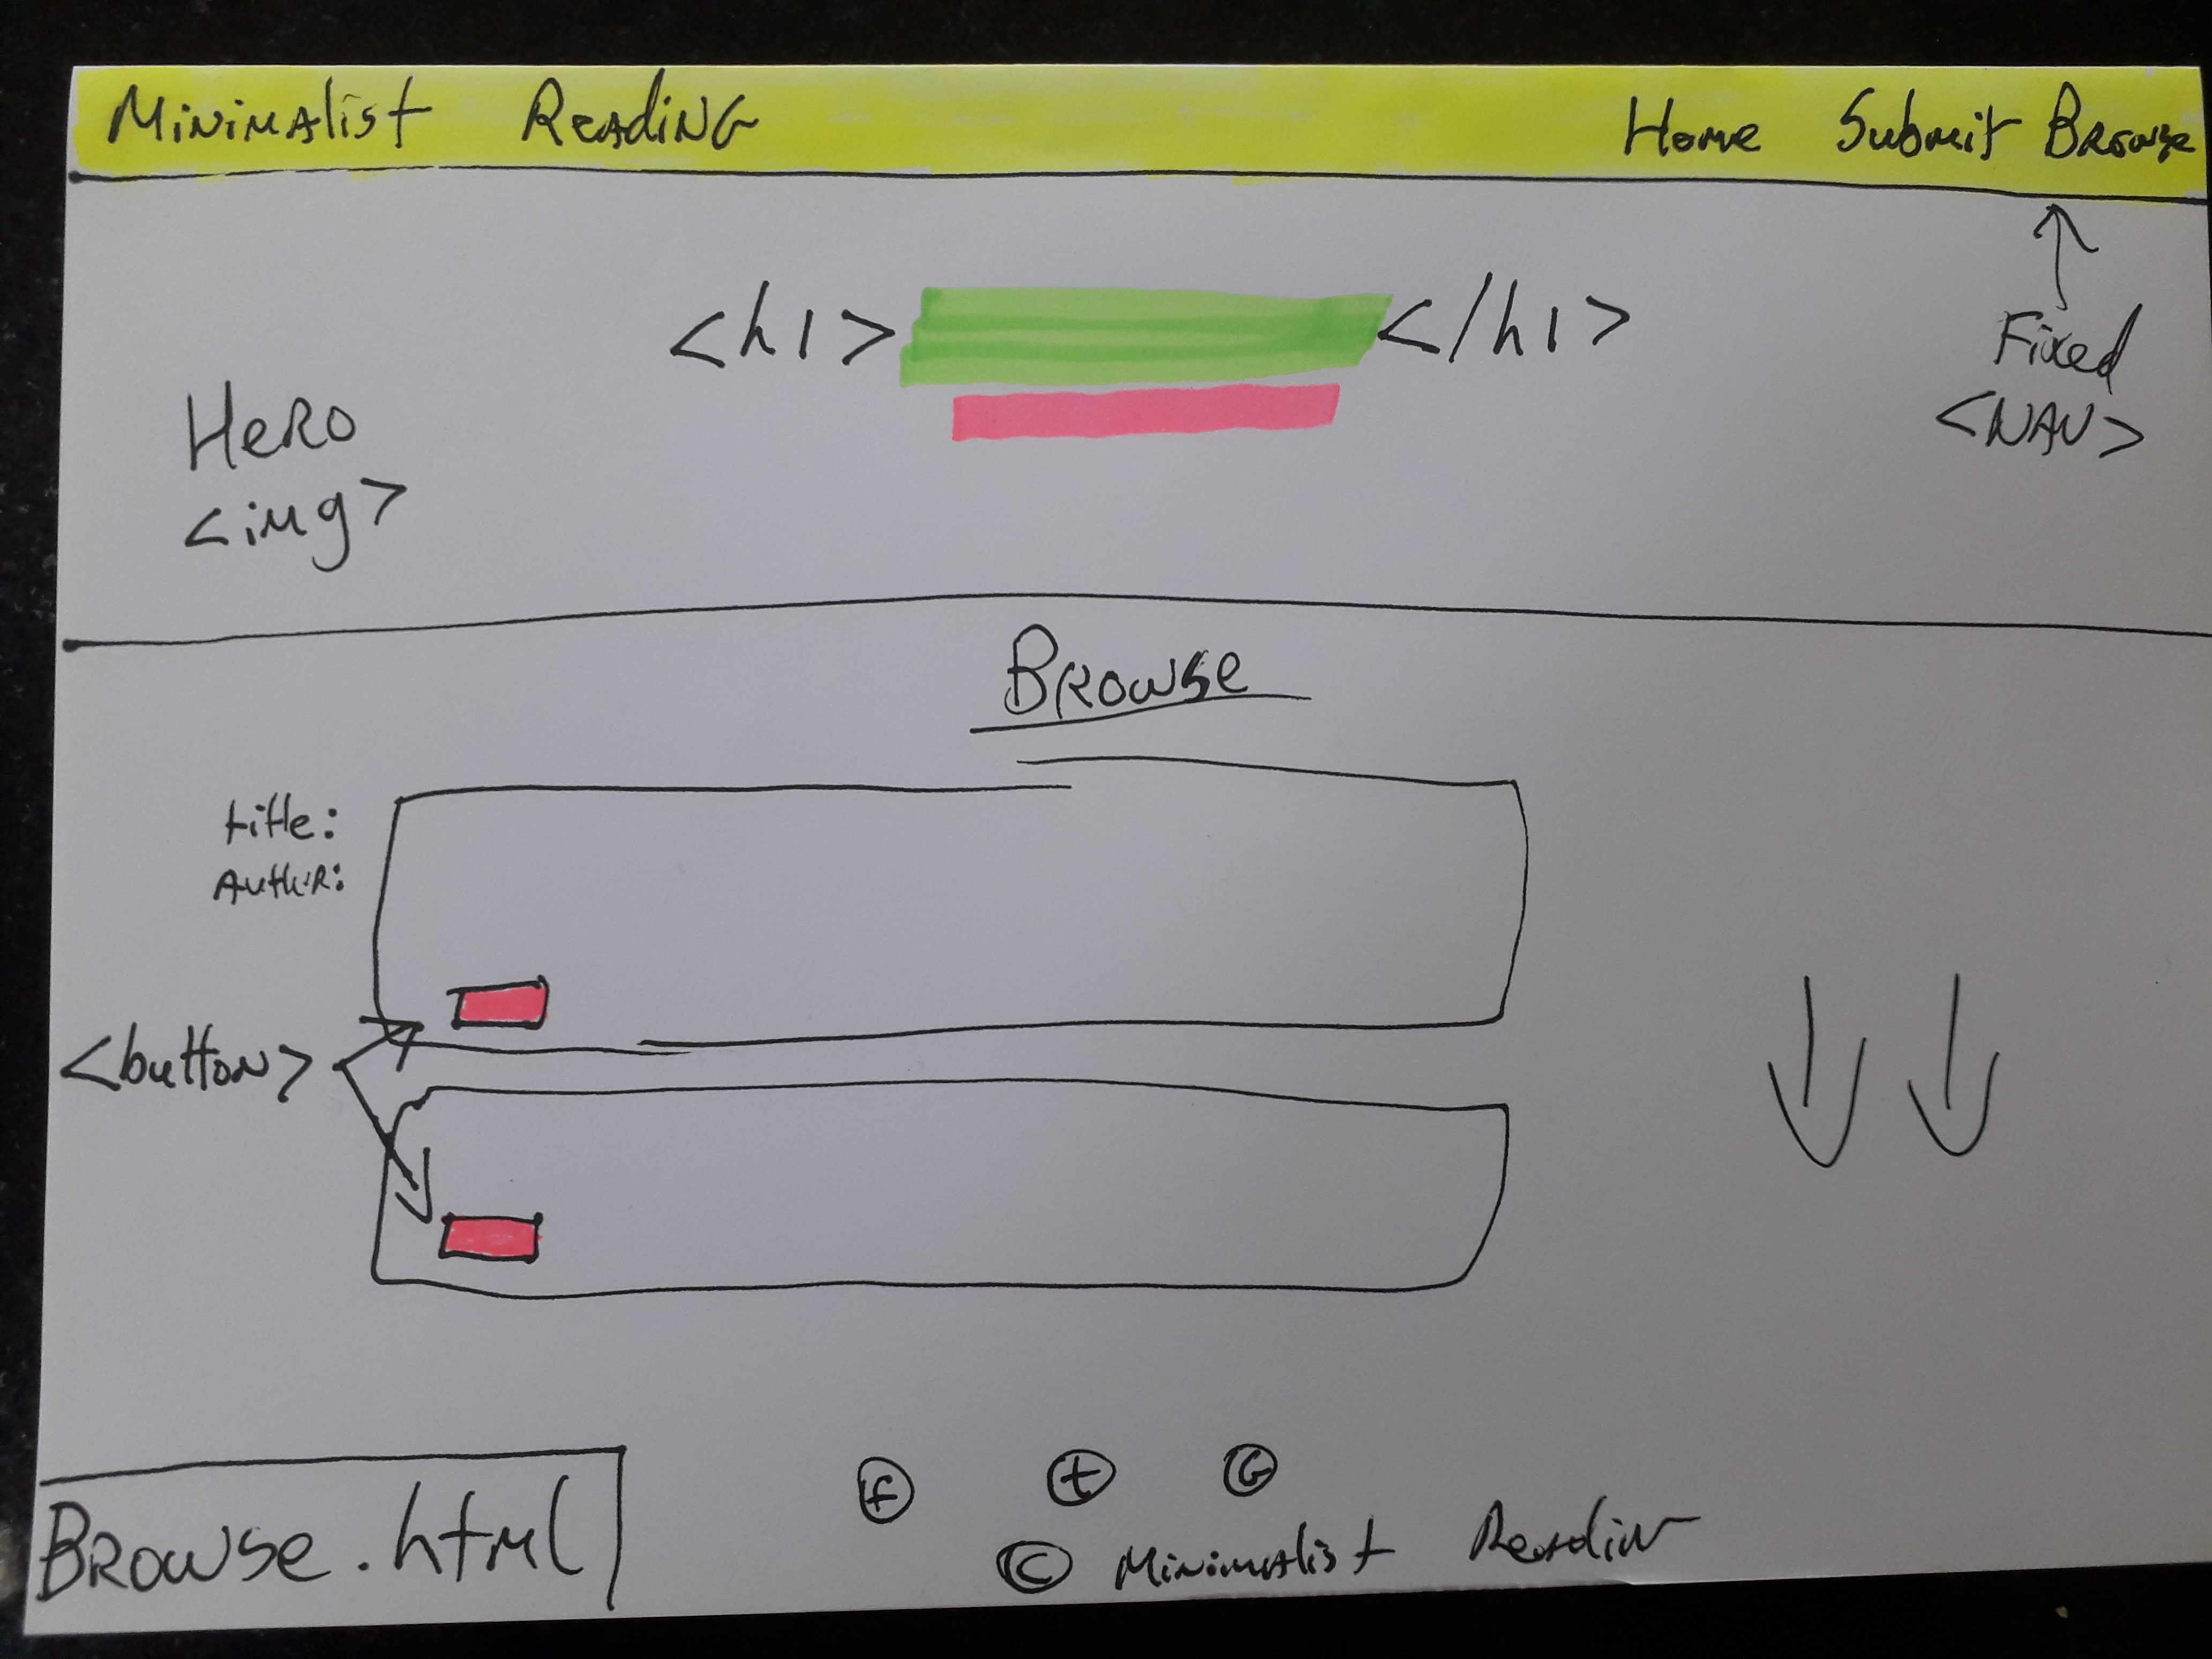 Minimalist Reading Home Submit Browse
<h1> </h1>
Fixed
<NAV>
Hero
<img>
Browse
title:
Author:
<button>
f t G
© Minimalist Readin
Browse.html